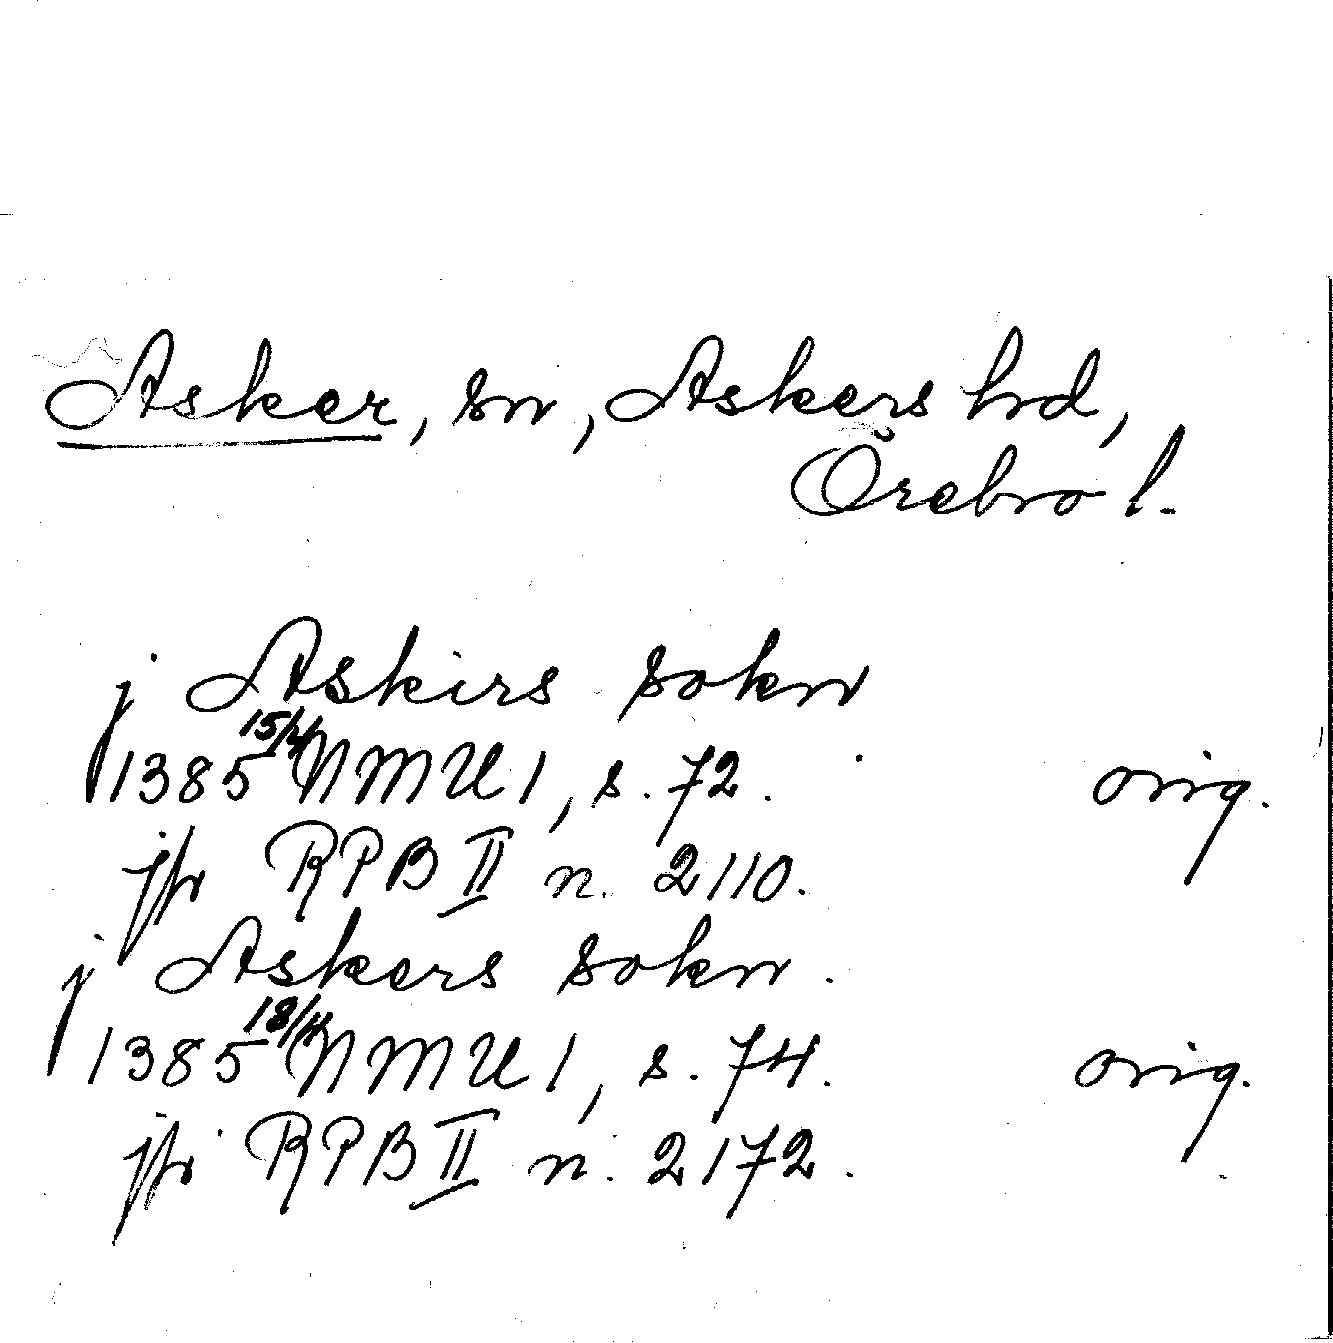 Asker, sn, Askers hd,
Örebro l.
j Askirs sokn
1385 15/4 NMU 1, s. 72. orig.
jfr RPB II n. 2110.
j Askers sokn.
1385 18/11 NMU 1, s. 74. orig.
jfr RPB II n. 2172.